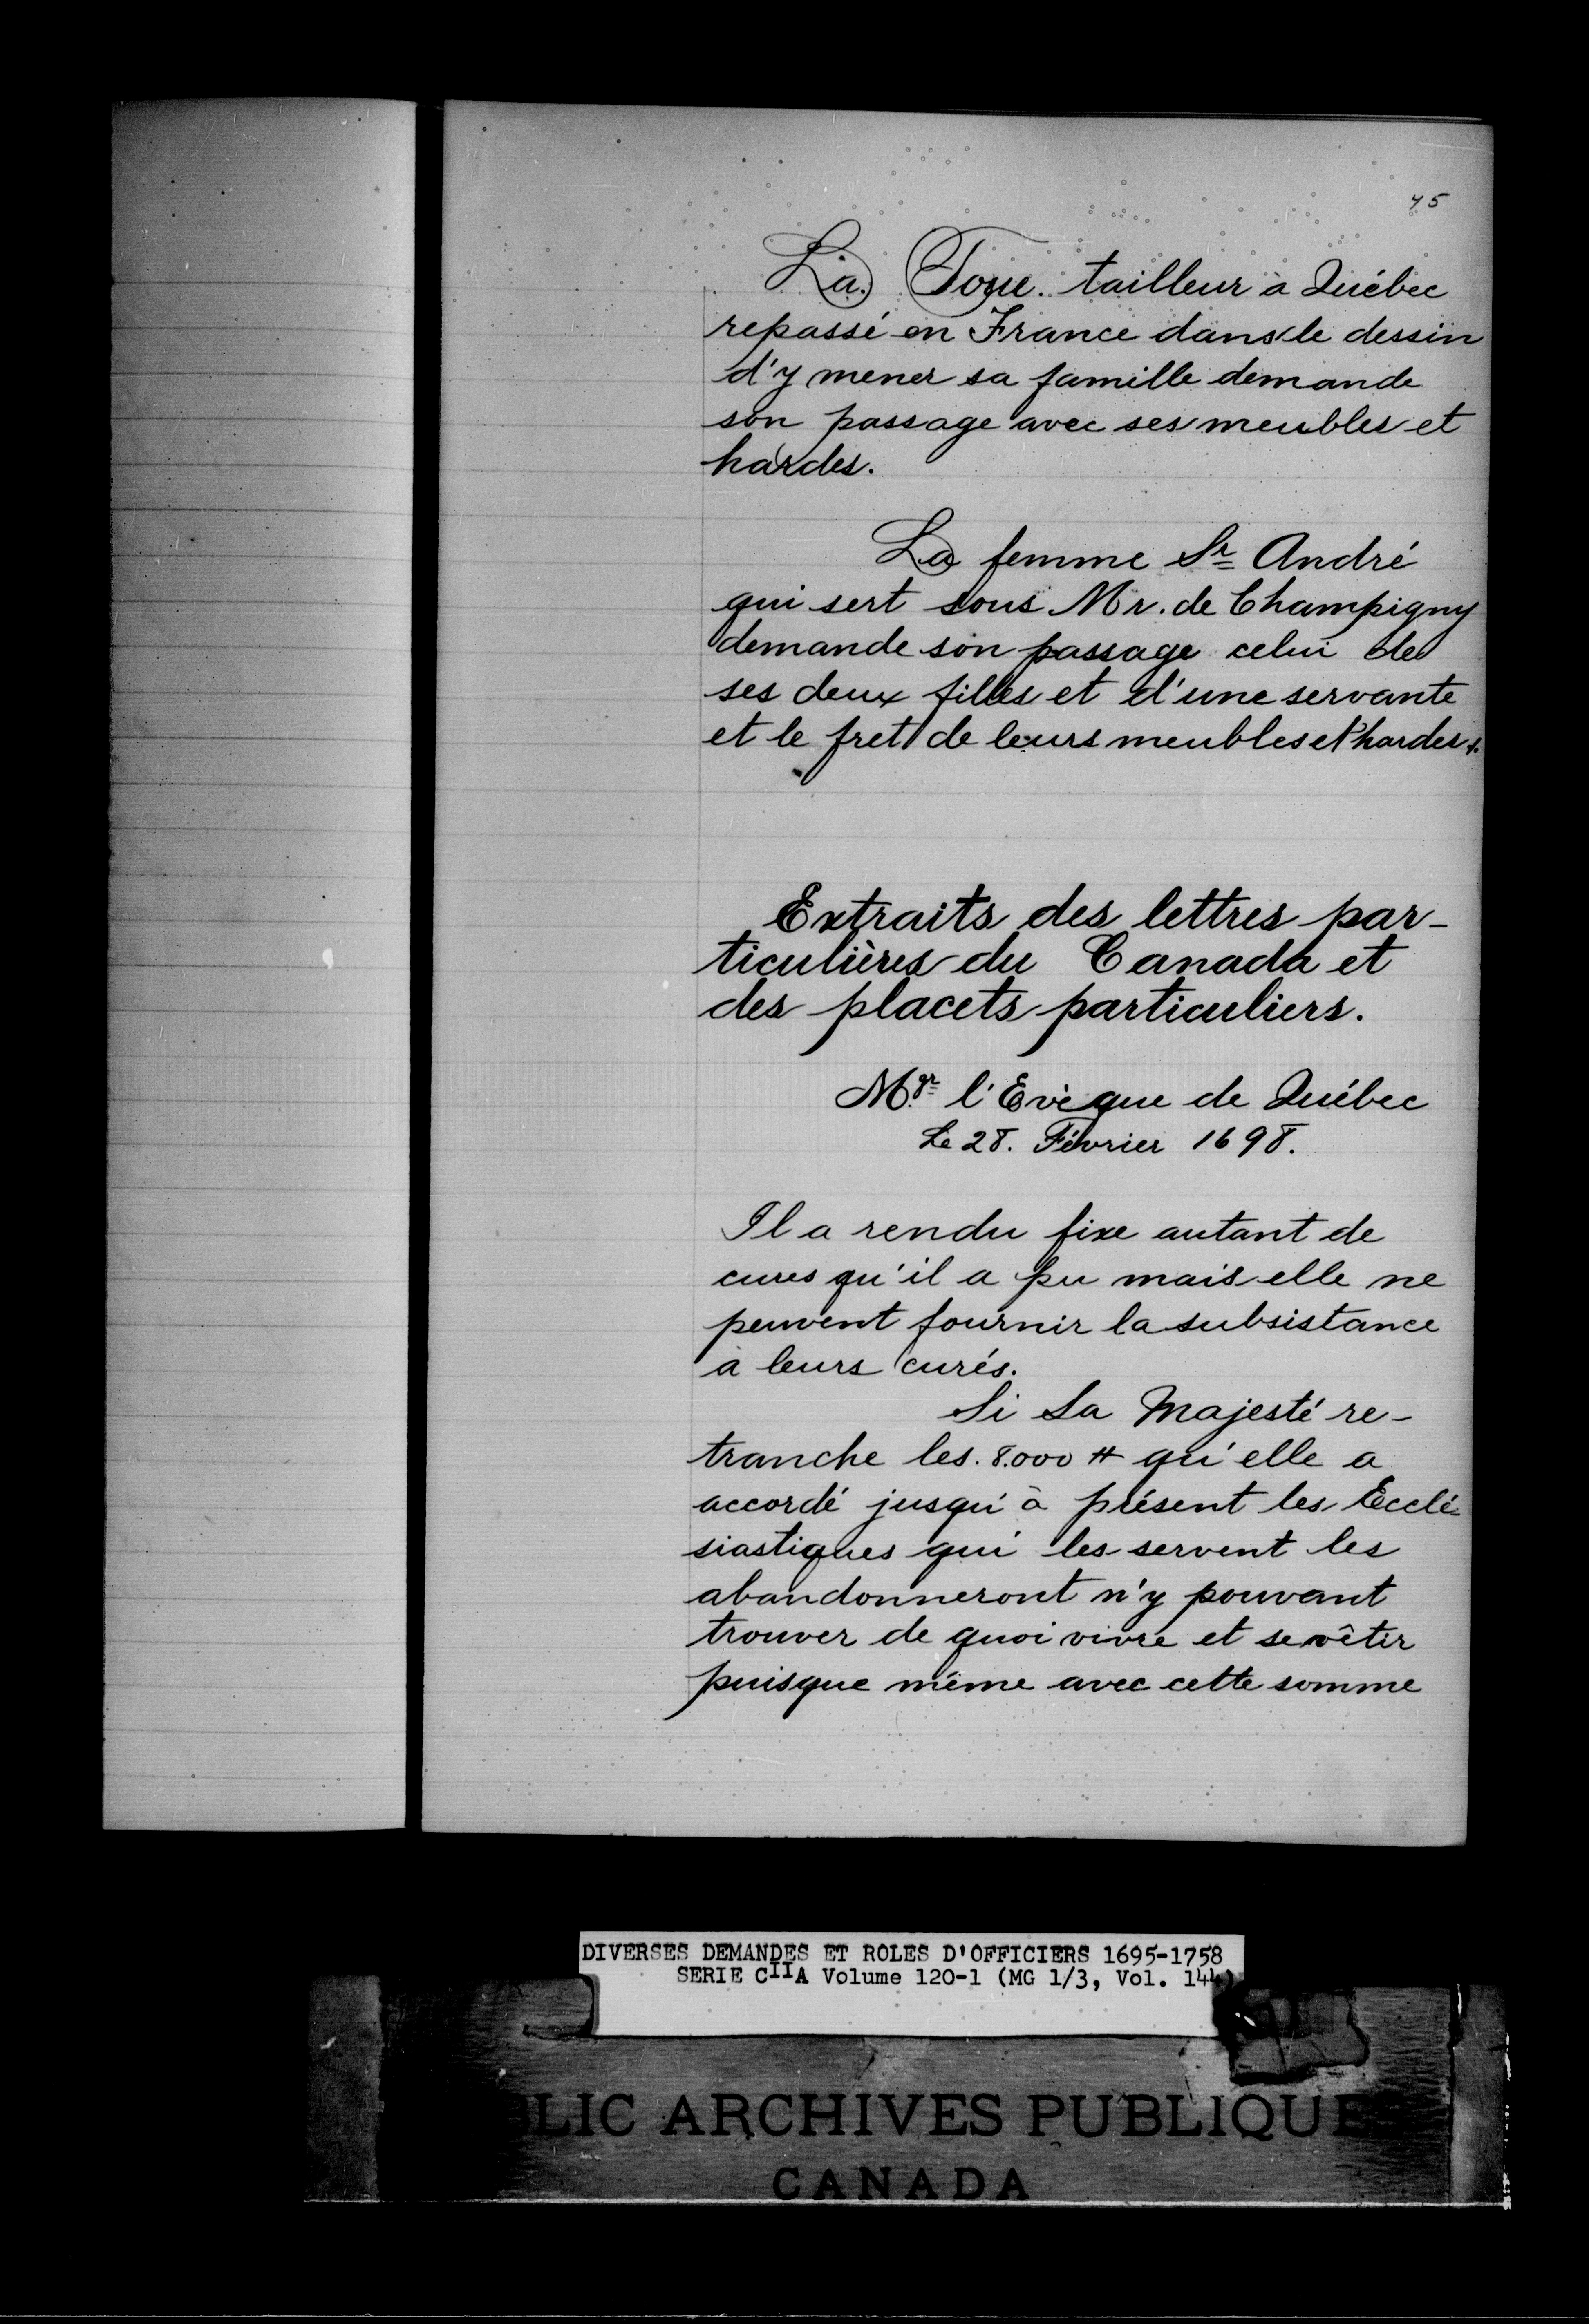 45
La Toue. tailleur à Québec
repassé en France dans le dessin
d'y mener sa famille demande
son passage avec ses meubles et
hardes.
La femme Sr André
qui sert sous Mr. de Champigny
demande son passage celui de
ses deux filles et d'une servante
et le fret de leurs meubles et hardes.
Extraits des lettres par-
ticulières du Canada et
des placets particuliers.
Mgr l'Evèque de Québec
Le 28. Février 1698.
Il a rendu fixe autant de
cures qu'il a pu mais elle ne
peuvent fournir la subsistance
à leurs curés.
Si Sa Majesté re-
tranche les. 8.000 # qu'elle a
accordé jusqu'à présent les Ecclé-
siastiques qui les servent les
abandonneront n'y pouvant
trouver de quoi vivre et se vêtir
puisque même avec cette somme
DIVERSES DEMANDES ET ROLES D'OFFICIERS 1695-1758
SERIE CIIA Volume 120-1 (MG 1/3, Vol. 144)
LIC ARCHIVES PUBLIQUE
CANADA